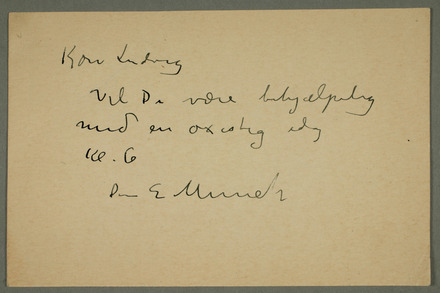 Kære Ludvig
Vil De være behjælpelig
med en oxesteg idag
Kl. 6
Din E Munch